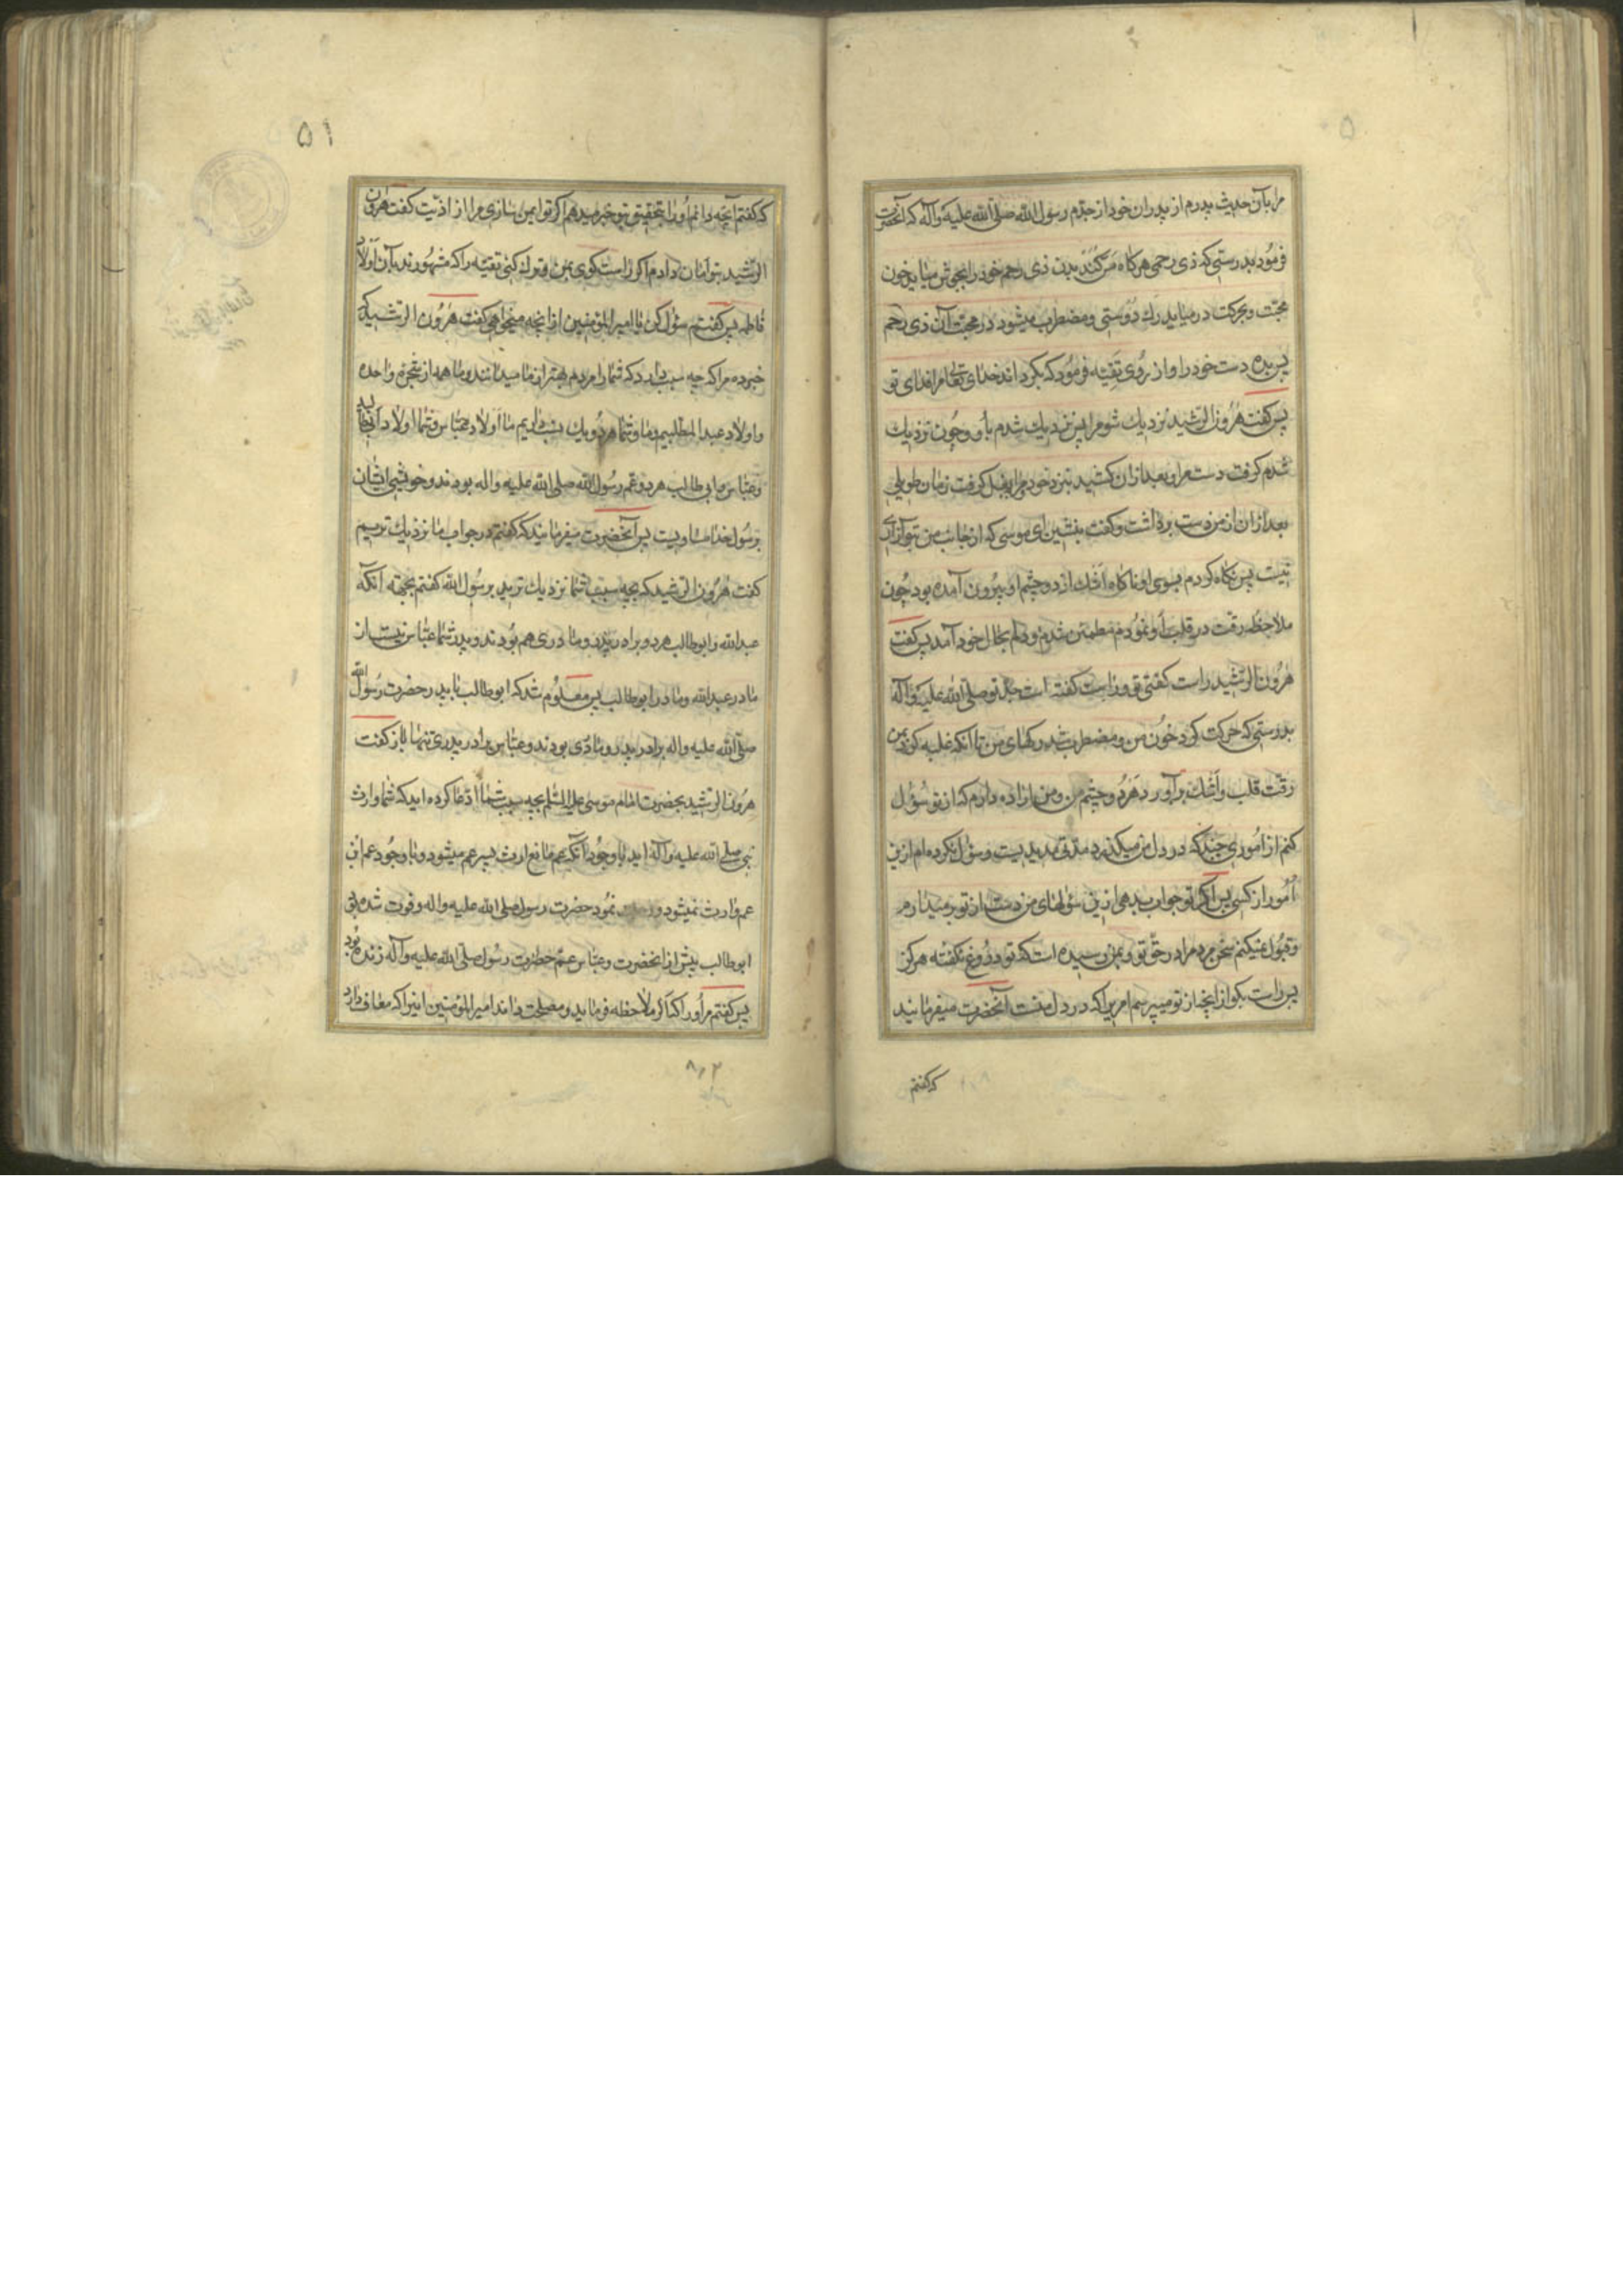 مرا بآن حدیث پدرم از پدران خود از جدّم رسول الله صلّی الله علیه وآله که آنحضرت
فرمود بدرستی که ذی رحمی هرگاه مس کند بدن ذی رحم خود را بجوش میاید خون
محبّت وبحرکت درمیاید رك دوستی ومضطرب میشود در محبّت آن ذی رحم
پس بده دست خود را و از روی تقیّه فرمود که بکرداند خدای تعالی مرا فدای تو
پس کفت هرون الرشید نزدیك شو مرا پس نزدیك شدم باو وچون نزدیك
شدم کرفت دست مرا وبعد ازان کشید بنزد خود ومرا ببغل کرفت زمان طویلی
بعد ازان از من دست برداشت وکفت بنشین ای موسی که از جانب من بتو آزاری
نیست پس نکاه کردم بسوی او ناکاه اشك از دو چشم او بیرون آمده بود چون
ملاحظه رقت در قلب او نمودم مطمئن شدم ودلم بحال خود آمد پس کفت
هرون الرشید راست کفتی تو و راست کفته است جد تو صلّی الله علیه وآله
بدرستی که حرکت کرد خون من ومضطرب شد رکهای من تا انکه غلبه کرد بمن
رقّت قلب واشك برآورد هر دو چشم من ومن اراده دارم که از تو سؤل
کنم از اموری چند که در دل من میکذرد مدّتی مدید است وسؤل نکرده ام ازین
امور از کسی پس اکر تو جواب بدهی ازین سؤلهای من دست از تو برمیدارم
وقبول نمیکنم سخن مردم را در حقّ تو وبمن رسیده است که تو دروغ نکفته هرکز
پس راست بکو از انچه از تو میپرسم امری را که در دل منست آنحضرت میفرمایند
که کفتم
۵۱
که کفتم آنچه دانم اورا بتحقیق بتو خبر میدهم اکر تو ایمن سازی مرا از اذیّت کفت هرون
الرشید بتو امان دادم اکر راست کوی بمن وترك کنی تقیّه را که مشهورند بآن اولاد
فاطمه پس کفتم سؤل کن یا امیرالمؤمنین از انچه میخواهی کفت هرون الرشید که
خبر ده مرا که چه سبب دارد که شما را مردم بهتر از ما میدانند وما همه از شجره واحده
واولاد عبدالمطلبیم وما وشما هر دو یك نسب داریم ما اولاد عبّاس وشما اولاد ابی طالبید
وعبّاس وابی طالب هر دو عم رسول الله صلی الله علیه واله بودند وخویشی ایشان
برسول خدا مساویست پس آنحضرت میفرمایند که کفتم در جواب ما نزدیك تریم
کفت هرون الرشید که بچه سبب شما نزدیك ترید برسول الله کفتم بجهته آنکه
عبدالله وابوطالب هر دو برادر پدر ومادری هم بودند وپدر شما عبّاس نیست از
مادر عبدالله ومادر ابوطالب پس معلوم شد که ابوطالب با پدر حضرت رسول الله
صلّی الله علیه واله برادر پدر ومادری بودند وعبّاس برادر پدری تنها باز کفت
هرون الرشید بحضرت امام موسی علیه السّلام بچه سبب شما ادّعا کرده اید که شما وارث
نبی صلی الله علیه وآله اید با وجود آنکه عم مانع ارث پسر عم میشود وبا وجود عم ابن
عم وارث نمیشود و نمود حضرت رسول صلی الله علیه واله وفوت شده بود
ابوطالب پیش از انحضرت وعبّاس عمّ حضرت رسول صلّی الله علیه وآله زنده بود
پس کفتم مر اورا که اکر ملاحظه فرماید ومصلحت داند امیرالمؤمنین اینرا که معاف دارد
۸۰۲